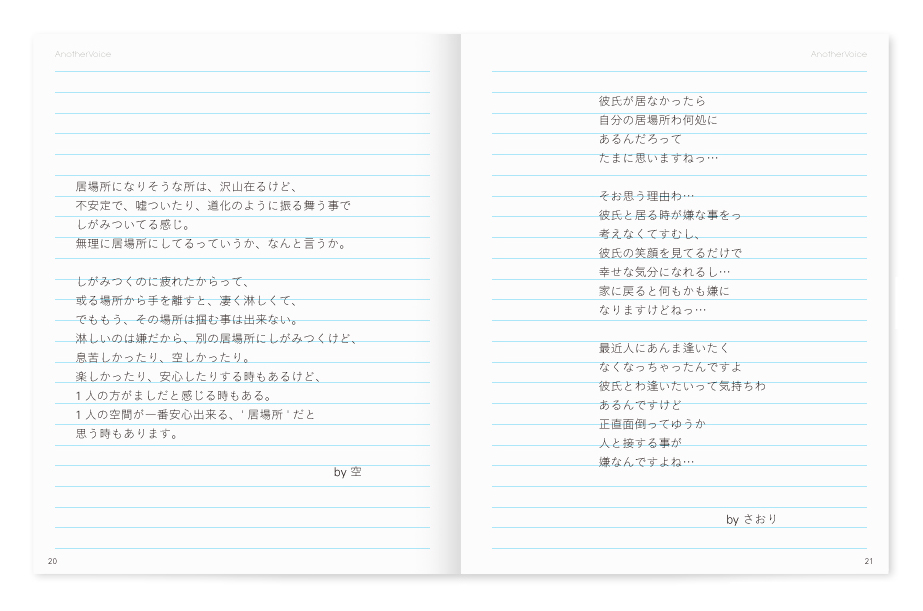 AnotherVoice
居場所になりそうな所は、沢山在るけど、
不安定で、嘘ついたり、道化のように振る舞う事で
しがみついてる感じ。
無理に居場所にしてるっていうか、なんと言うか。
しがみつくのに疲れたからって、
或る場所から手を離すと、凄く淋しくて、
でももう、その場所は掴む事は出来ない。
淋しいのは嫌だから、別の居場所にしがみつくけど、
息苦しかったり、空しかったり。
楽しかったり、安心したりする時もあるけど、
1 人の方がましだと感じる時もある。
1 人の空間が一番安心出来る、' 居場所 ' だと
思う時もあります。
by 空
20
AnotherVoice
彼氏が居なかったら
自分の居場所わ何処に
あるんだろって
たまに思いますねっ…
そお思う理由わ…
彼氏と居る時が嫌な事をっ
考えなくてすむし、
彼氏の笑顔を見てるだけで
幸せな気分になれるし…
家に戻ると何もかも嫌に
なりますけどねっ…
最近人にあんま逢いたく
なくなっちゃったんですよ
彼氏とわ逢いたいって気持ちわ
あるんですけど
正直面倒ってゆうか
人と接する事が
嫌なんですよね…
by さおり
21